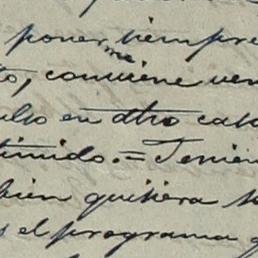 poner siempre
me
to, conviene ven
ulto en dho caso
timido.= Tenien
bien quisiera s
s el programa q